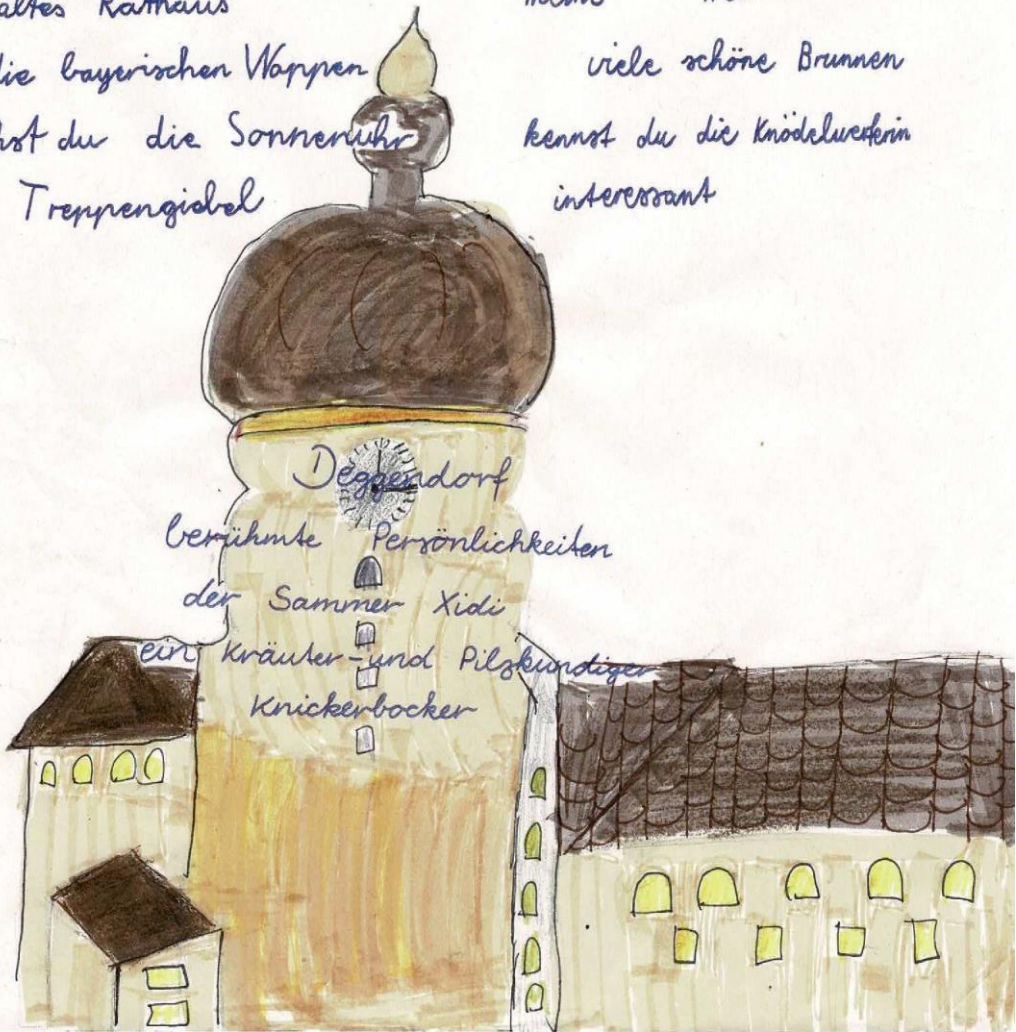 altes Rathaus
die bayerischen Wappen
du die Sonnenuhr
Treppengiebel
viele schöne Brunnen
kennst du die Knödelwerferin
interessant
Deggendorf
berühmte Persönlichkeiten
der Sammer Xidi
ein Kräuter-und Pilzkundiger
Knickerbocker